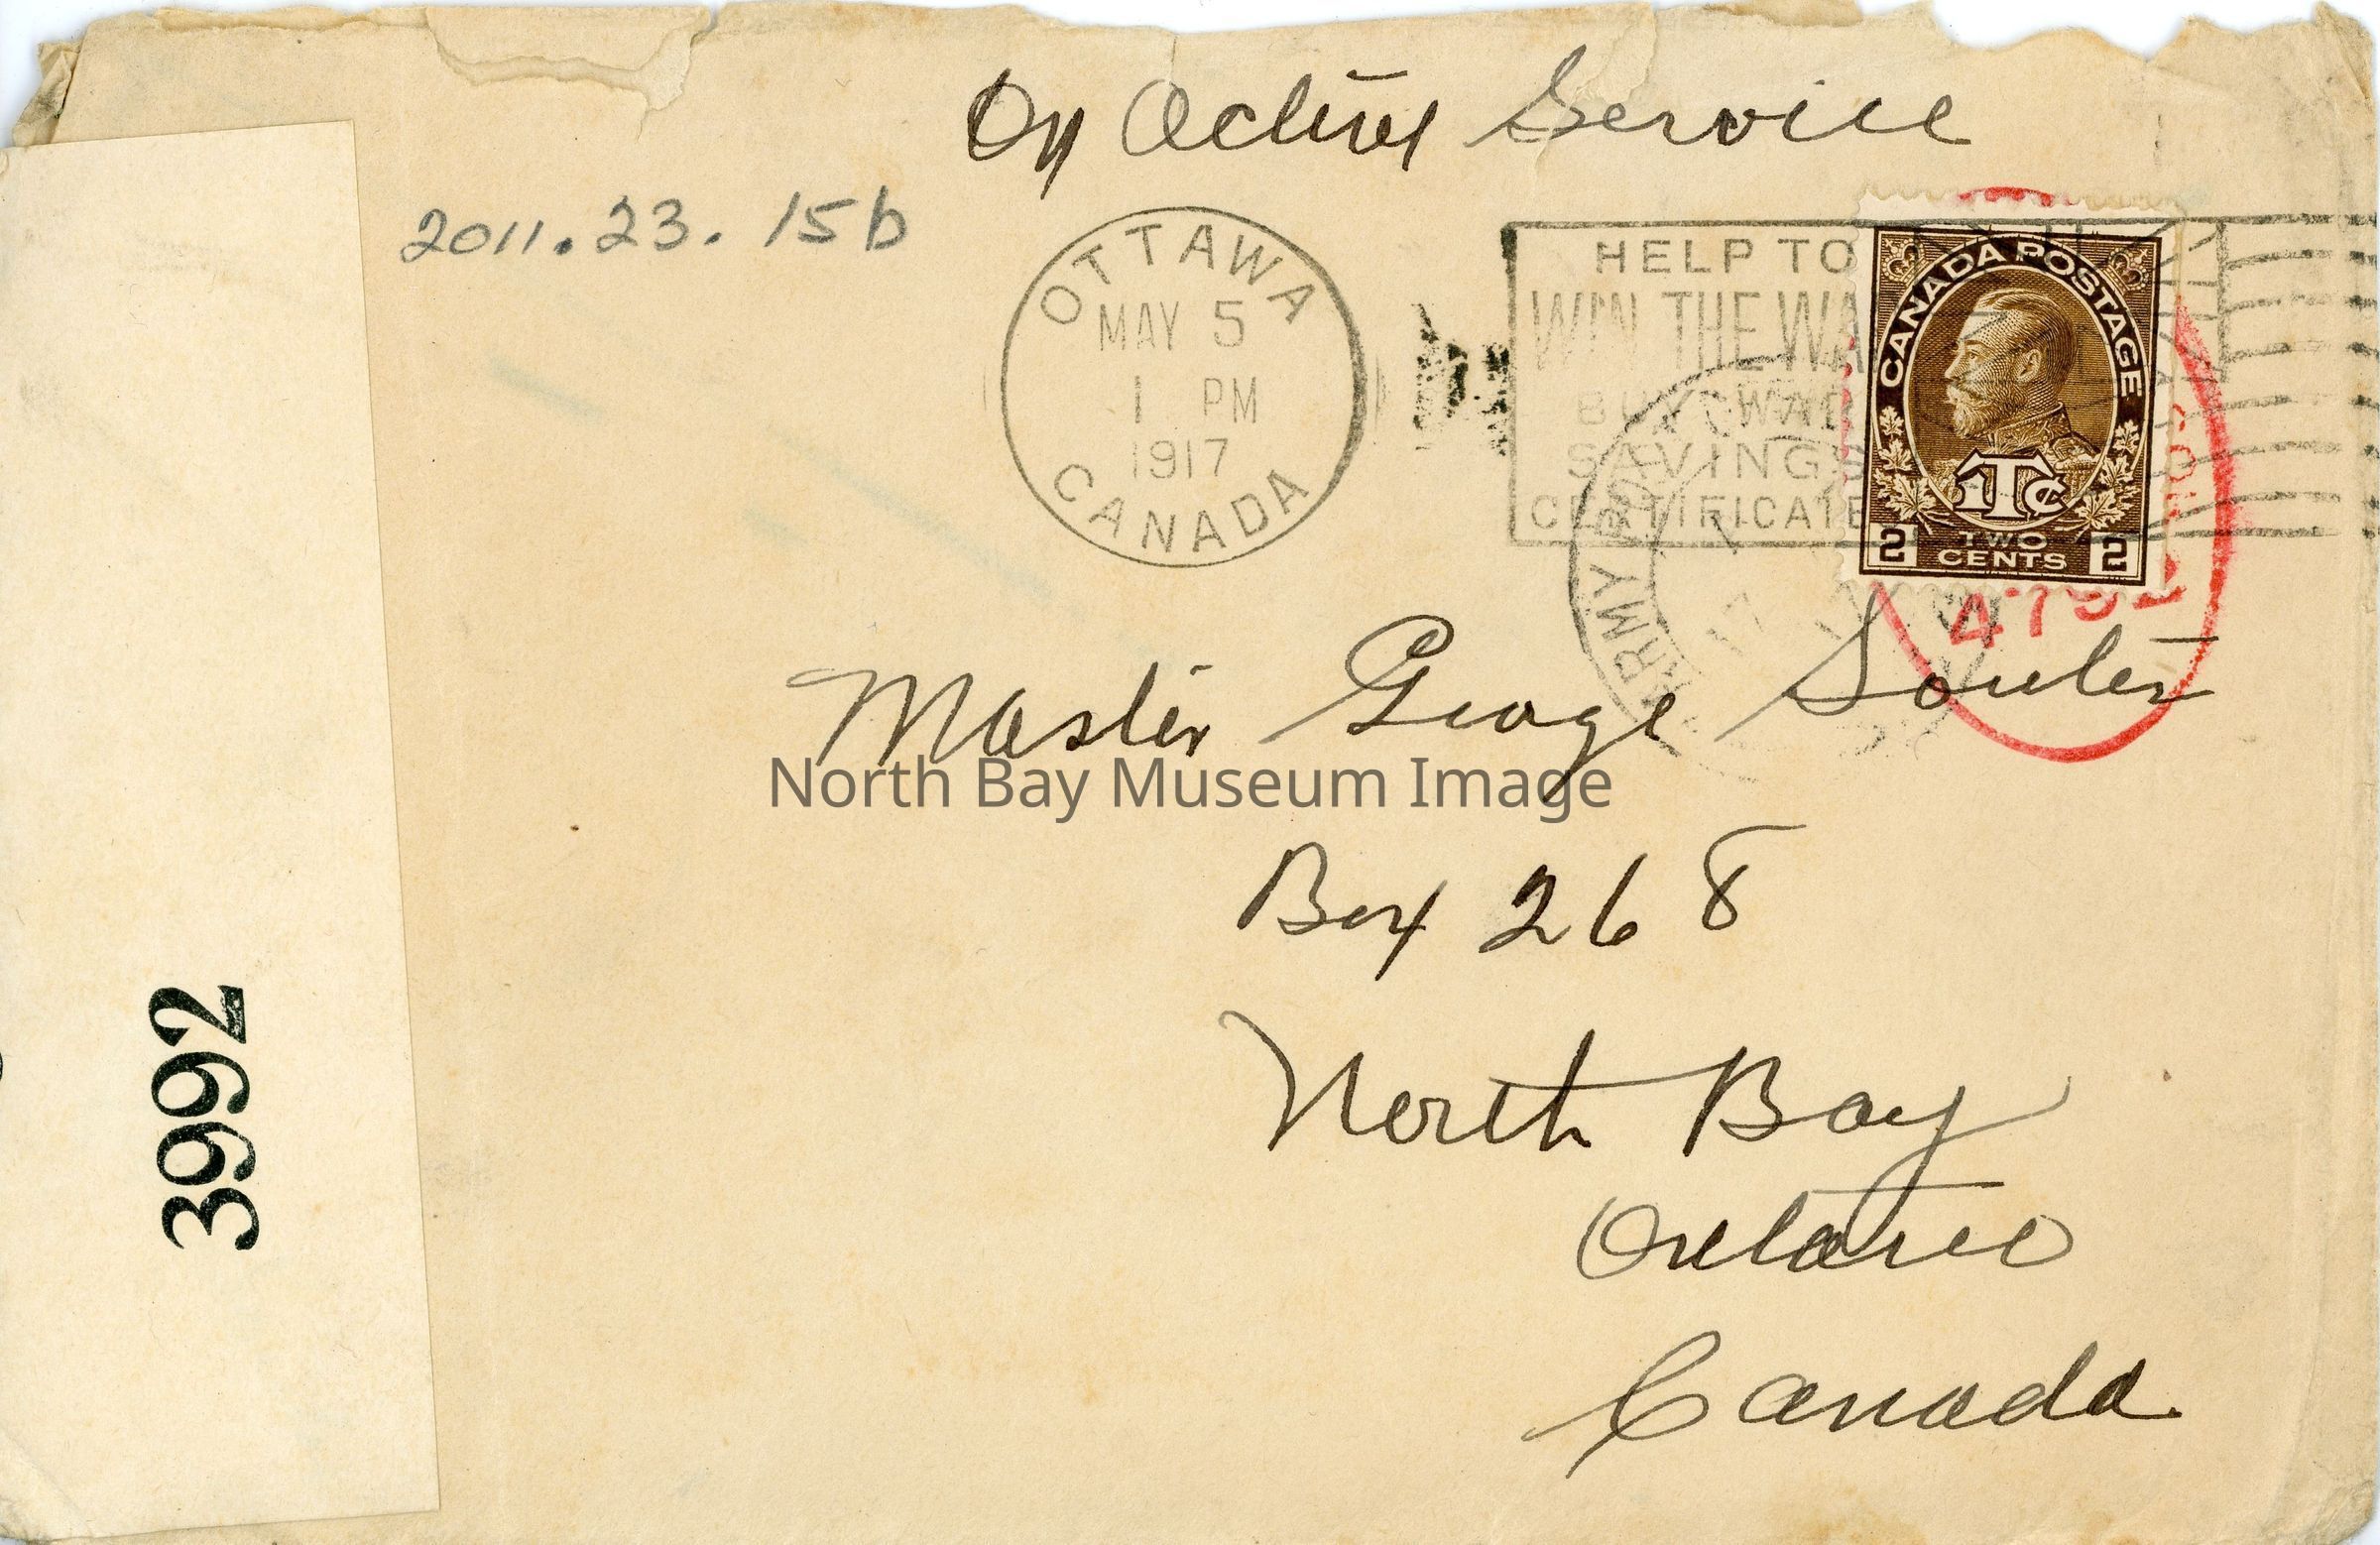 On Active Service
2011.23.15b
OTTAWA
MAY 5
1 PM
1917
CANADA
HELP TO
WIN THE WA
BUY WAR
SAVINGS
CERTIFICATE
CANADA POSTAGE
1Tc
2 TWO CENTS 2
ARMY
4792
Master George Souter
North Bay Museum Image
Box 268
North Bay
Ontario
Canada
3992